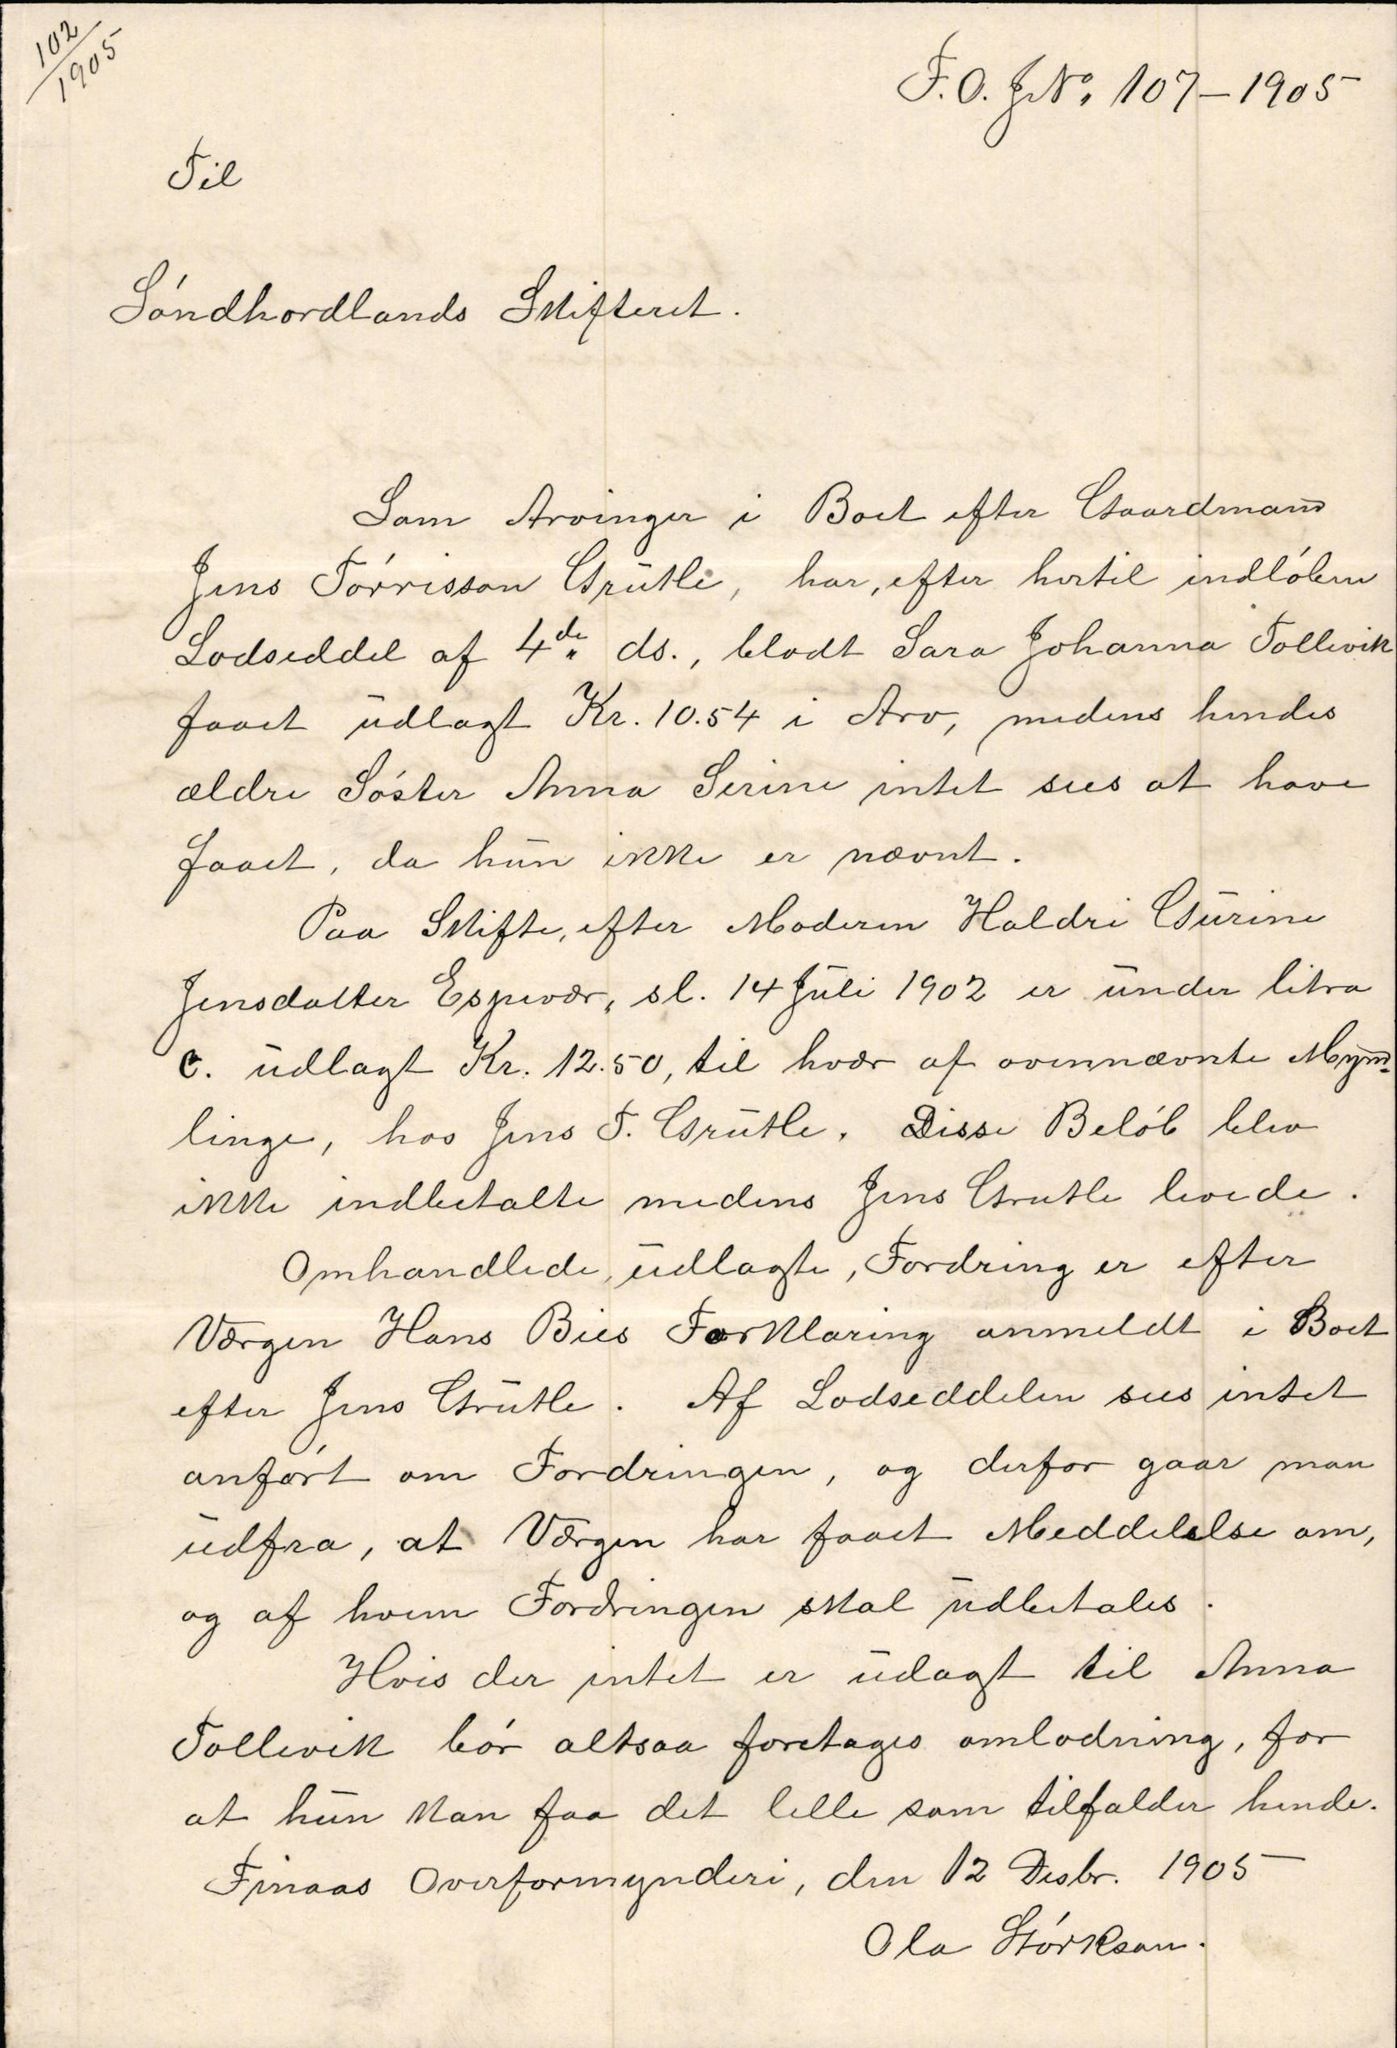 102/1905
F. O. J№. 107–1905
Til
Søndhordlands Skifteret.
Som Arvinger i Boet efter Gaardmand
Jens Tørrisson Grutle, har, efter hertil indløben
Lodseddel af 4de ds., blodt Sara Johanna Tollevik
faaet udlagt Kr. 10.54 i Arv, medens hendes
ældre Søster Anna Serine intet sees at have
faaet, da hun ikke er nævnt.
Paa Skifte, efter Moderen Haldri Gurine
Jensdatter Espevær, sl. 14 Juli 1902 er under litra
c. udlagt Kr. 12.50, til hvær af ovennævnte Mynd-
linge, hos Jens T. Grutle. Disse Beløb blev
ikke indbetalte medens Jens Grutle levede.
Omhandlede, udlagte, Fordring er efter
Værgen Hans Bies Forklaring anmeldt i Boet
efter Jens Grutle. Af Lodseddelen sees intet
anført om Fordringen, og derfor gaar man
udfra, at Værgen har faaet Meddelelse om,
og af hvem Fordringen skal udbetales.
Hvis der intet er udagt til Anna
Tollevik bør altsaa foretages omlodning, for
at hun kan faa det lille som tilfalder hende.
Finaas Overformynderi, den 12 Desbr. 1905
Ola Størkson.